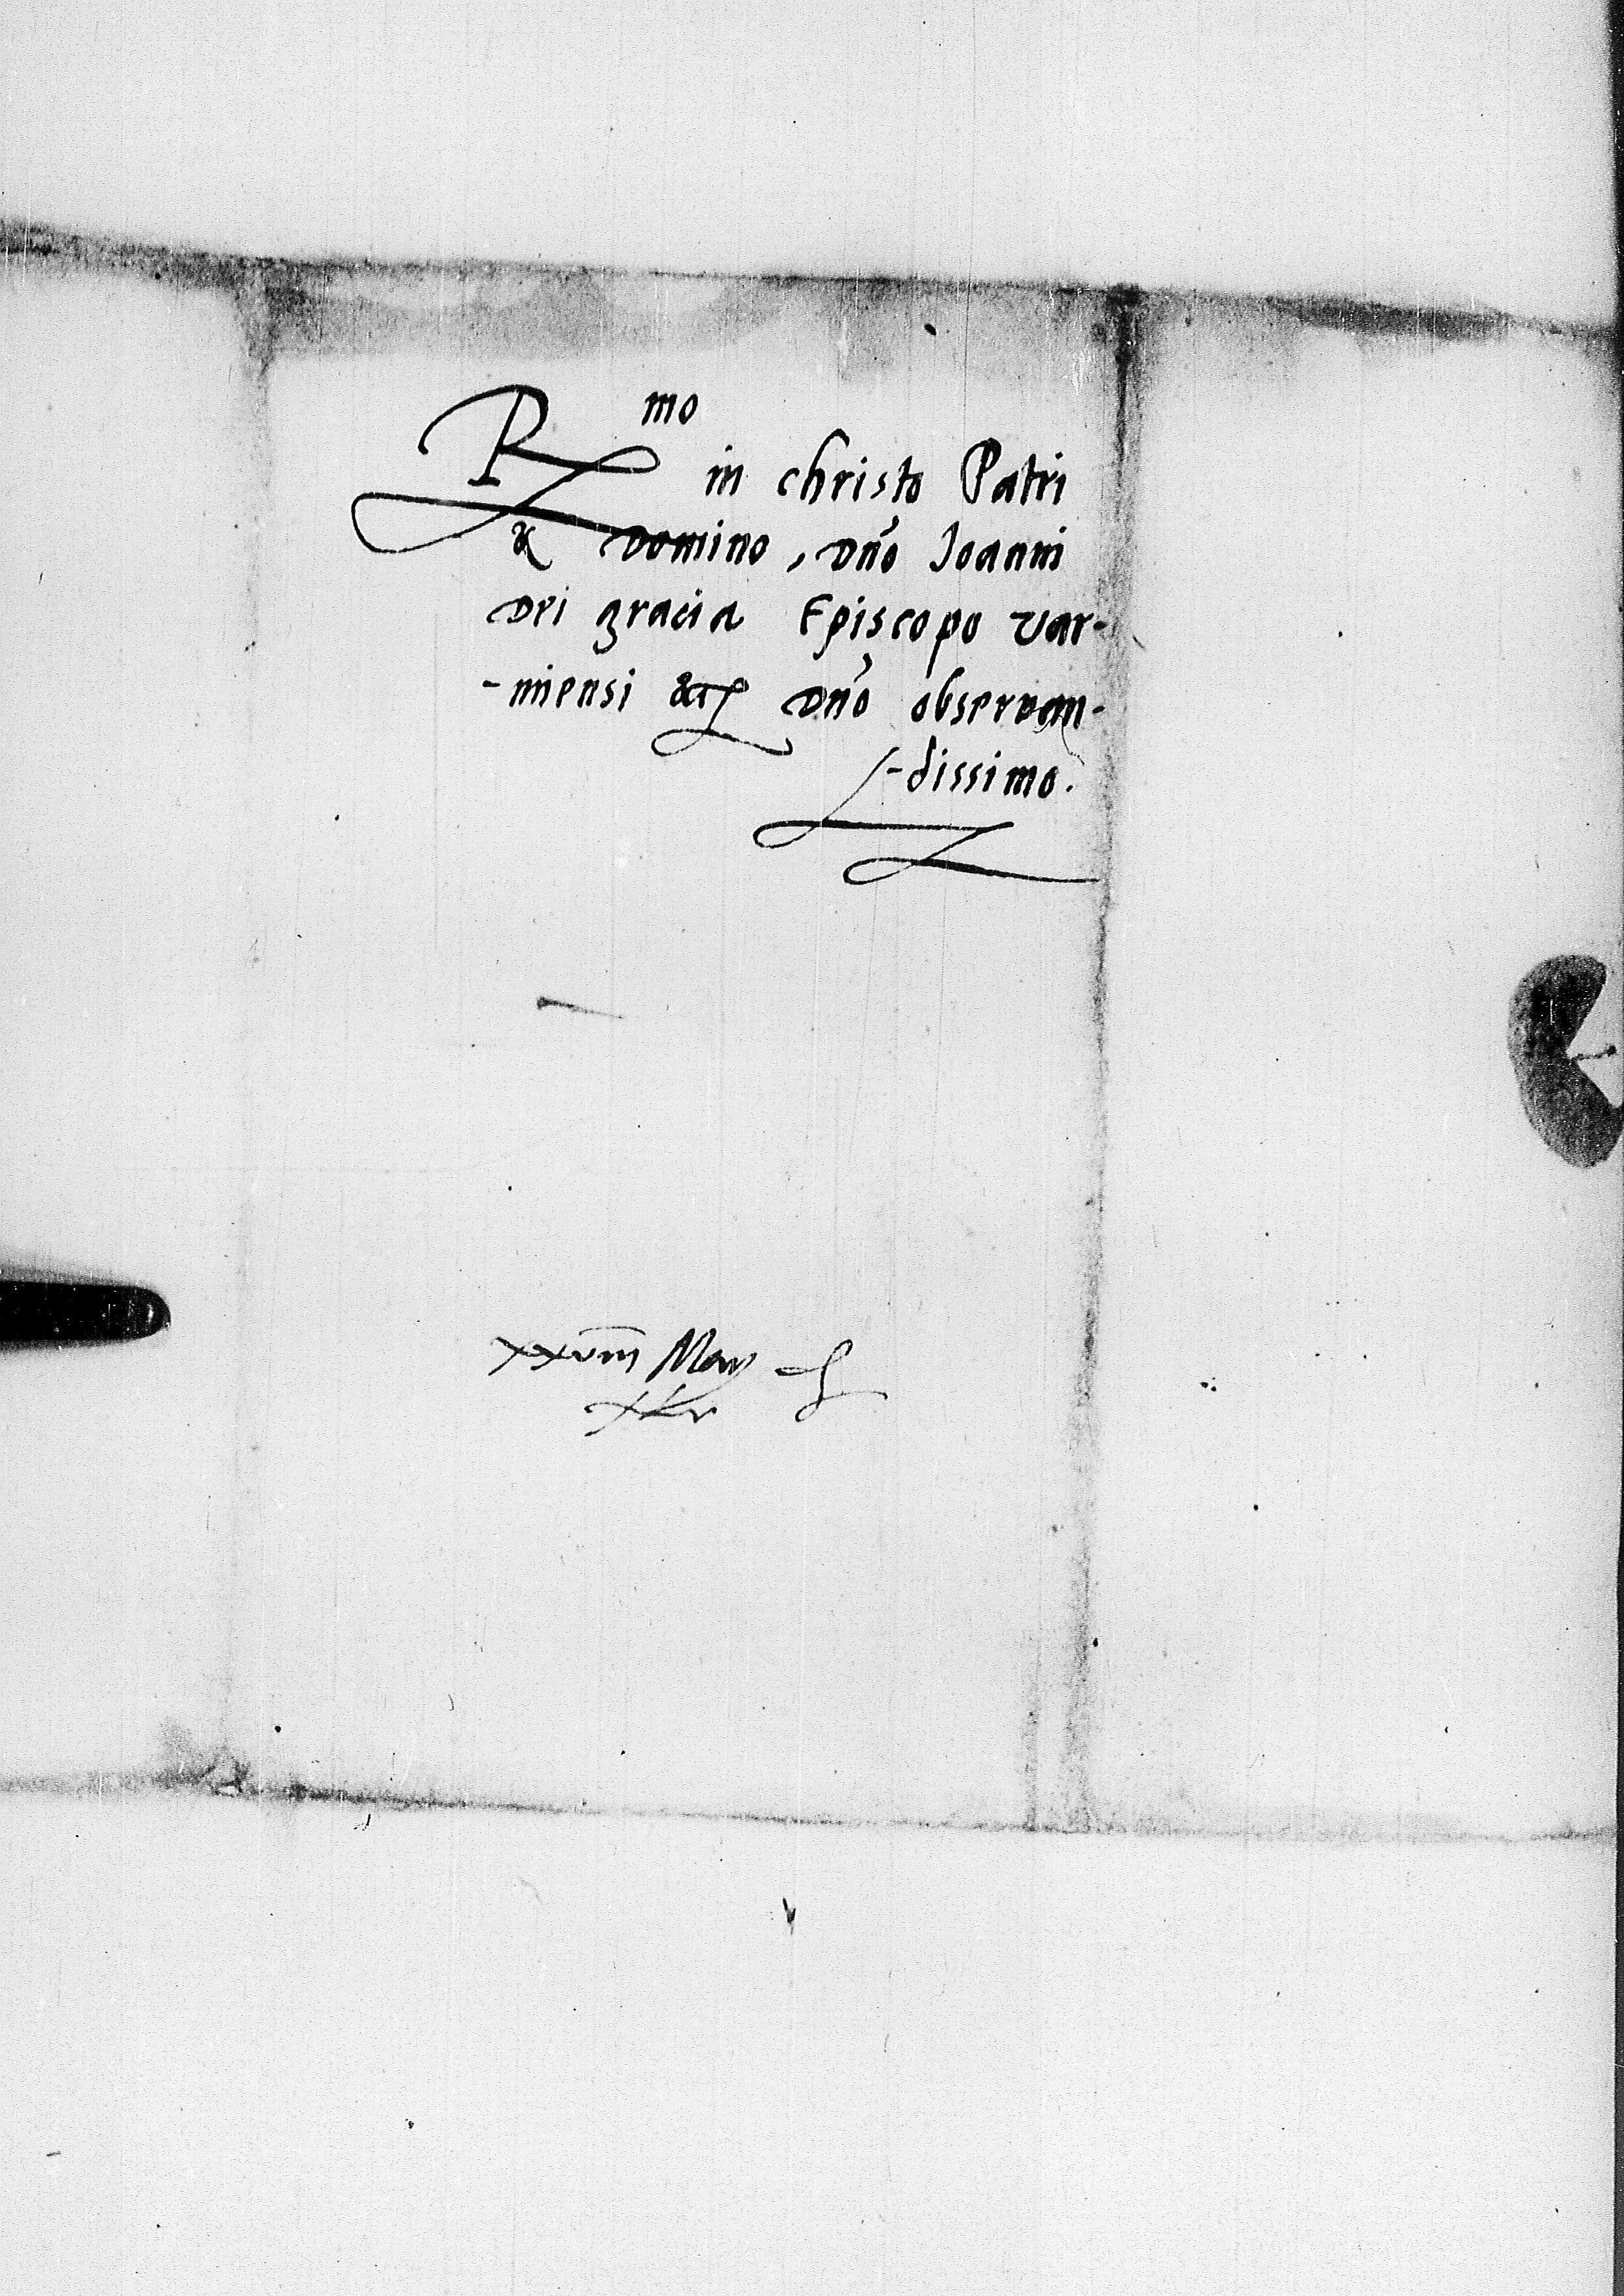 R mo in christo Patri
& Domino, Dño Joanni
Dei gracia Episcopo Var-
-miensi &c Dño observan-
-dissimo.
xxviii May